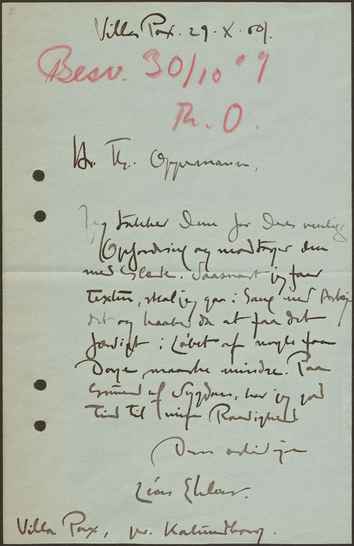 Villa Pax. 29-X-09.
Besv. 30/10 09
Th. O.
Hr. Th. Oppermann,
Jeg takker Dem for Deres venlige
Opfordring og modtager den
med Glæde. Saasnart jeg faar
Texten, skal jeg gaa i Gang med Arbej-
det og haaber da at faa det
færdigt i Løbet af nogle faa
Dage, maaske mindre. Paa
Grund af Sygdom, har jeg god
Tid til min Raadighed
Deres
Villa Pax, pr. Kalundborg.